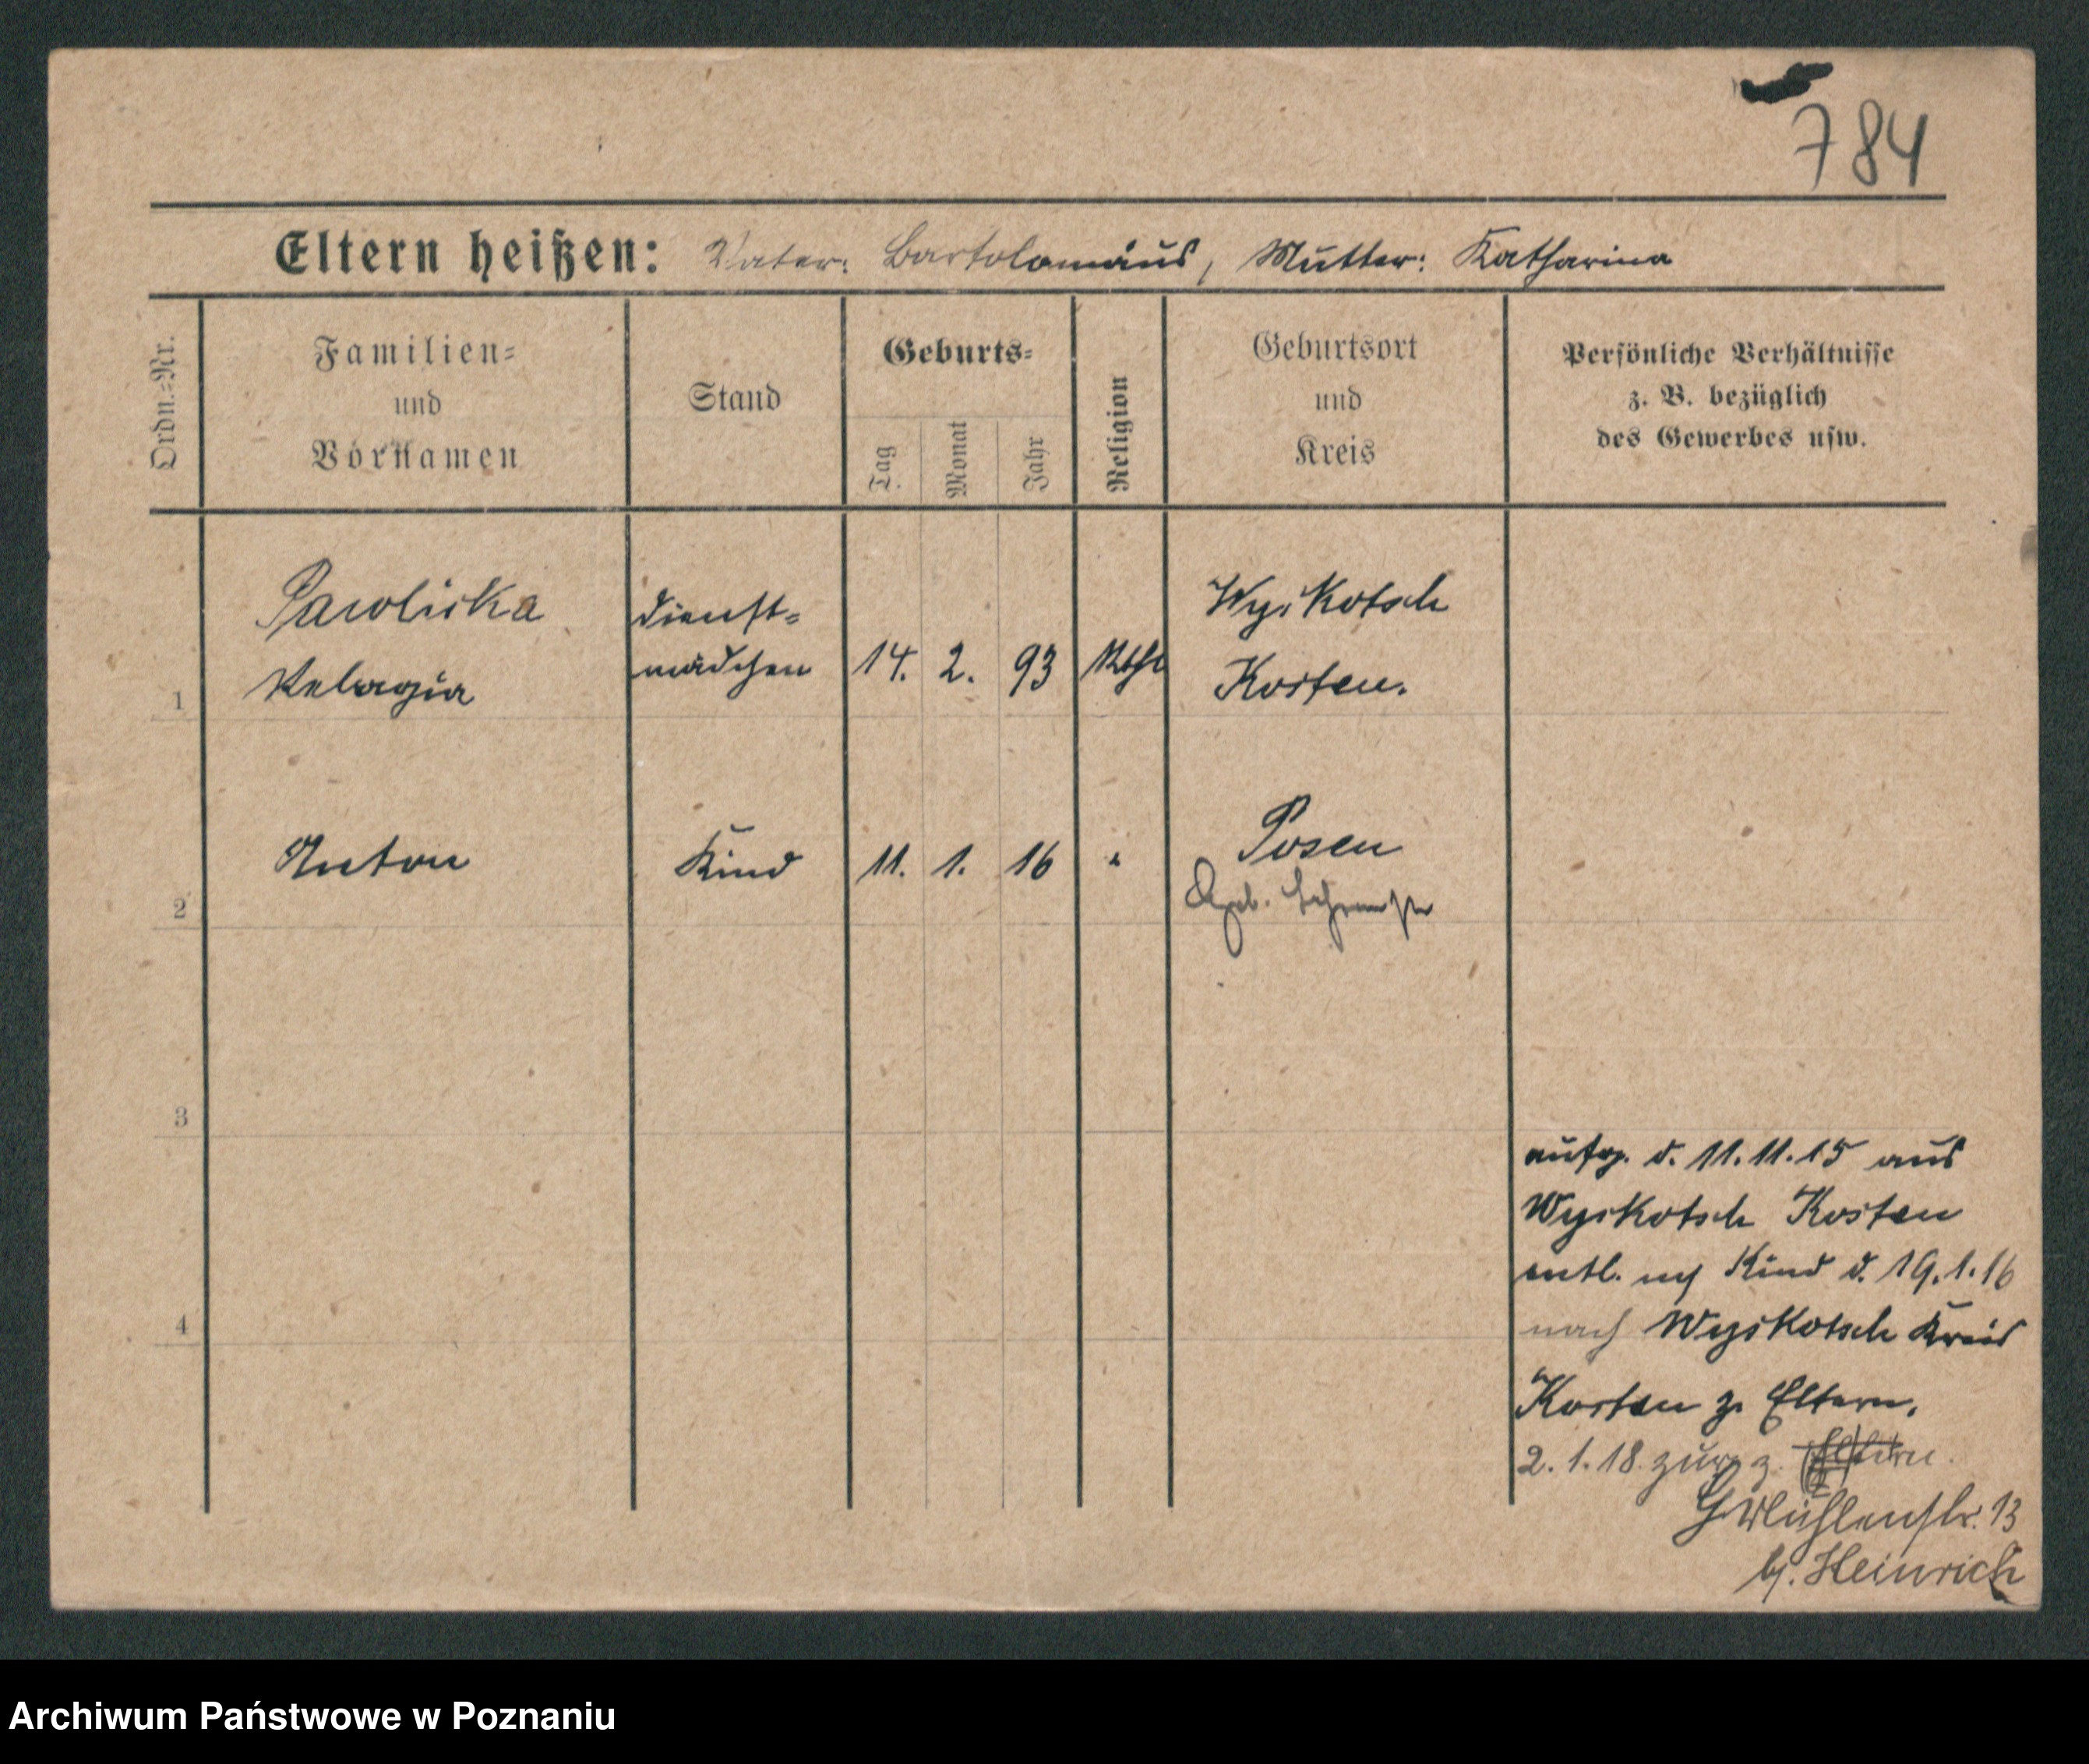 784
Eltern heißen: Vater: Bartolomäus, Mutter: Katharina
Ordn.-Nr.
Familien-
und
Vornamen
Stand
Geburts-
Tag
Monat
Jahr
Religion
Geburtsort
und
Kreis
Persönliche Verhältnisse
z. B. bezüglich
des Gewerbes usw.
1
Pawlicka
Pelagia
Dienst-
mädchen
14. 2. 93
Kthl
Wyskotsch
Kosten.
2
Anton
Kind
11. 1. 16
"
Posen
3
4
aufg. d. 11.11.15 aus
Wyskotsch Kosten
entl. Kind d. 19.1.16
nach Wyskotsch Kreis
Kosten z. Eltern.
2.1.18. z. Eltern.
Mühlenstr. 13
b. Heinrich
Archiwum Państwowe w Poznaniu